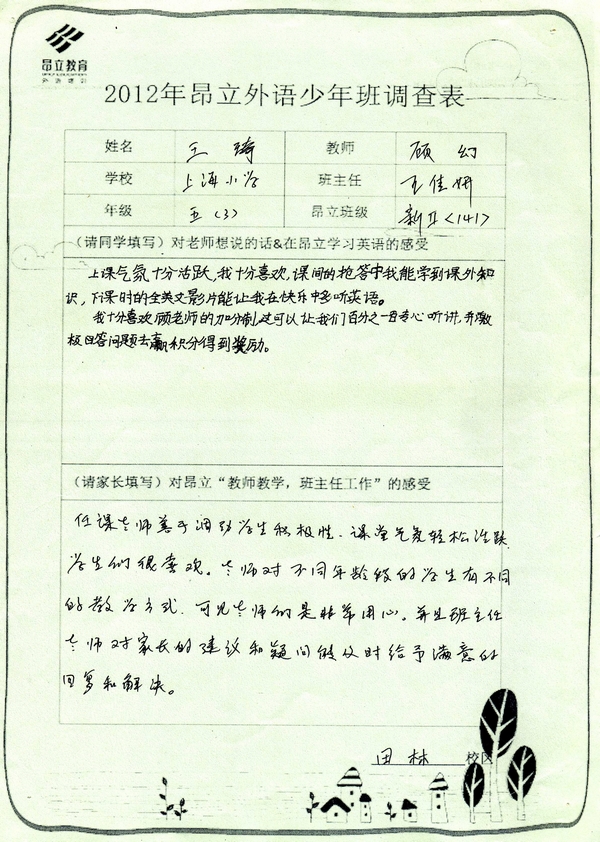 昂立教育
外语培训
2012年昂立外语少年班调查表
姓名 王琦 教师 顾幻
学校 上海小学 班主任 王佳妍
年级 五（3） 昂立班级 新II<141>
（请同学填写）对老师想说的话&在昂立学习英语的感受
上课气氛十分活跃,我十分喜欢,课间的抢答中我能学到课外知
识,下课时的全英文影片能让我在快乐中多听英语。
我十分喜欢顾老师的加分制,这可以让我们百分之一百专心听讲,并激
极回答问题去赢积分得到奖励。
（请家长填写）对昂立“教师教学，班主任工作”的感受
任课老师善于调动学生积极性.课堂气氛轻松活跃
学生们很喜欢。老师对不同年龄级的学生有不同
的教学方式.可见老师们是非常用心。并且班主任
老师对家长的建议和疑问能及时给予满意的
回复和解决。
田林 校区